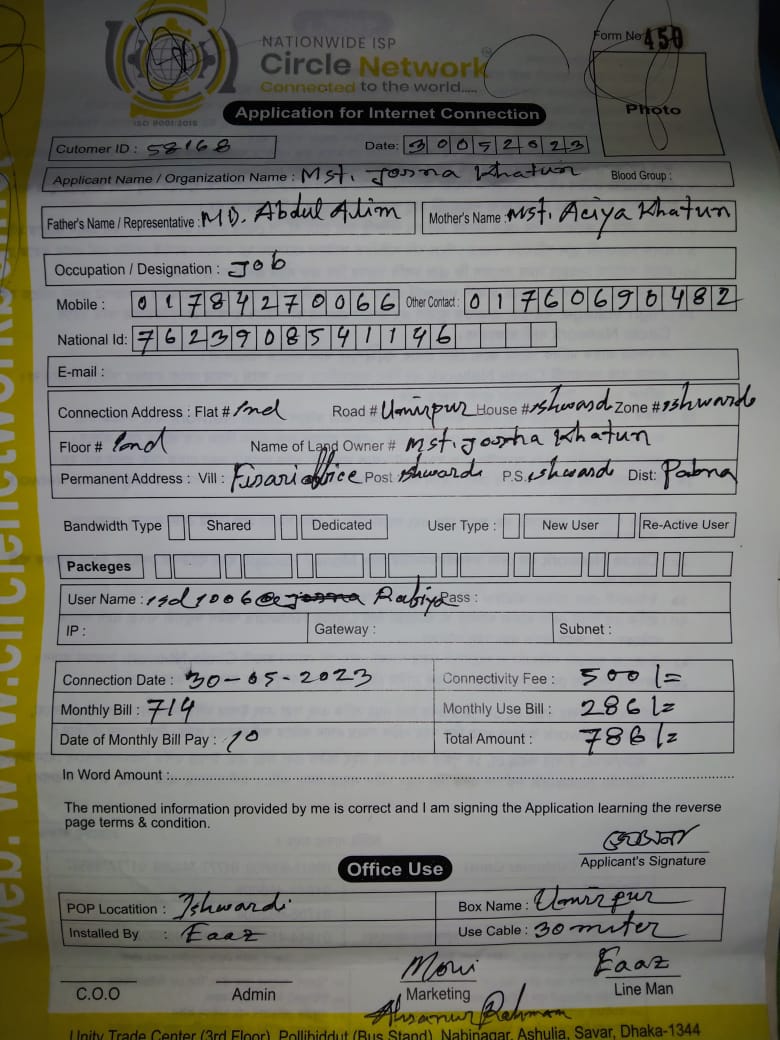 NATIONWIDE ISP
Circle Network
Connected to the world.....
ISO 9001:2015
Form No 450
Photo
Application for Internet Connection
Cutomer ID : 58168 Date: 30052023
Applicant Name / Organization Name : Mst. Josna Khatun Blood Group :
Father's Name / Representative : MD. Abdul Alim Mother's Name : Mst. Aciya Khatun
Occupation / Designation : Job
Mobile : 01784270066 Other Contact : 01760690482
National Id: 7623908541146
E-mail :
Connection Address : Flat # Road # Umirpur House # Ishwardi Zone # Ishwardi
Floor # Name of Land Owner # Mst. Josna Khatun
Permanent Address : Vill : office Post Ishwardi P.S. Ishwardi Dist: Pabna
Bandwidth Type Shared Dedicated User Type : New User Re-Active User
Packeges
User Name : isd1006@ Rabiya Pass :
IP : Gateway : Subnet :
Connection Date : 30-05-2023 Connectivity Fee : 500/=
Monthly Bill : 714 Monthly Use Bill : 286/=
Date of Monthly Bill Pay : 10 Total Amount : 786/=
In Word Amount :
The mentioned information provided by me is correct and I am signing the Application learning the reverse
page terms & condition.
জোসনা
Applicant's Signature
Office Use
POP Locatition : Ishwardi Box Name : Umirpur
Installed By : Eaaz Use Cable : 30 miter
Moni Eaaz
C.O.O Admin Marketing Line Man
Ahsanur Rahman
Unity Trade Center (3rd Floor), Pollibiddut (Bus Stand), Nabinagar, Ashulia, Savar, Dhaka-1344